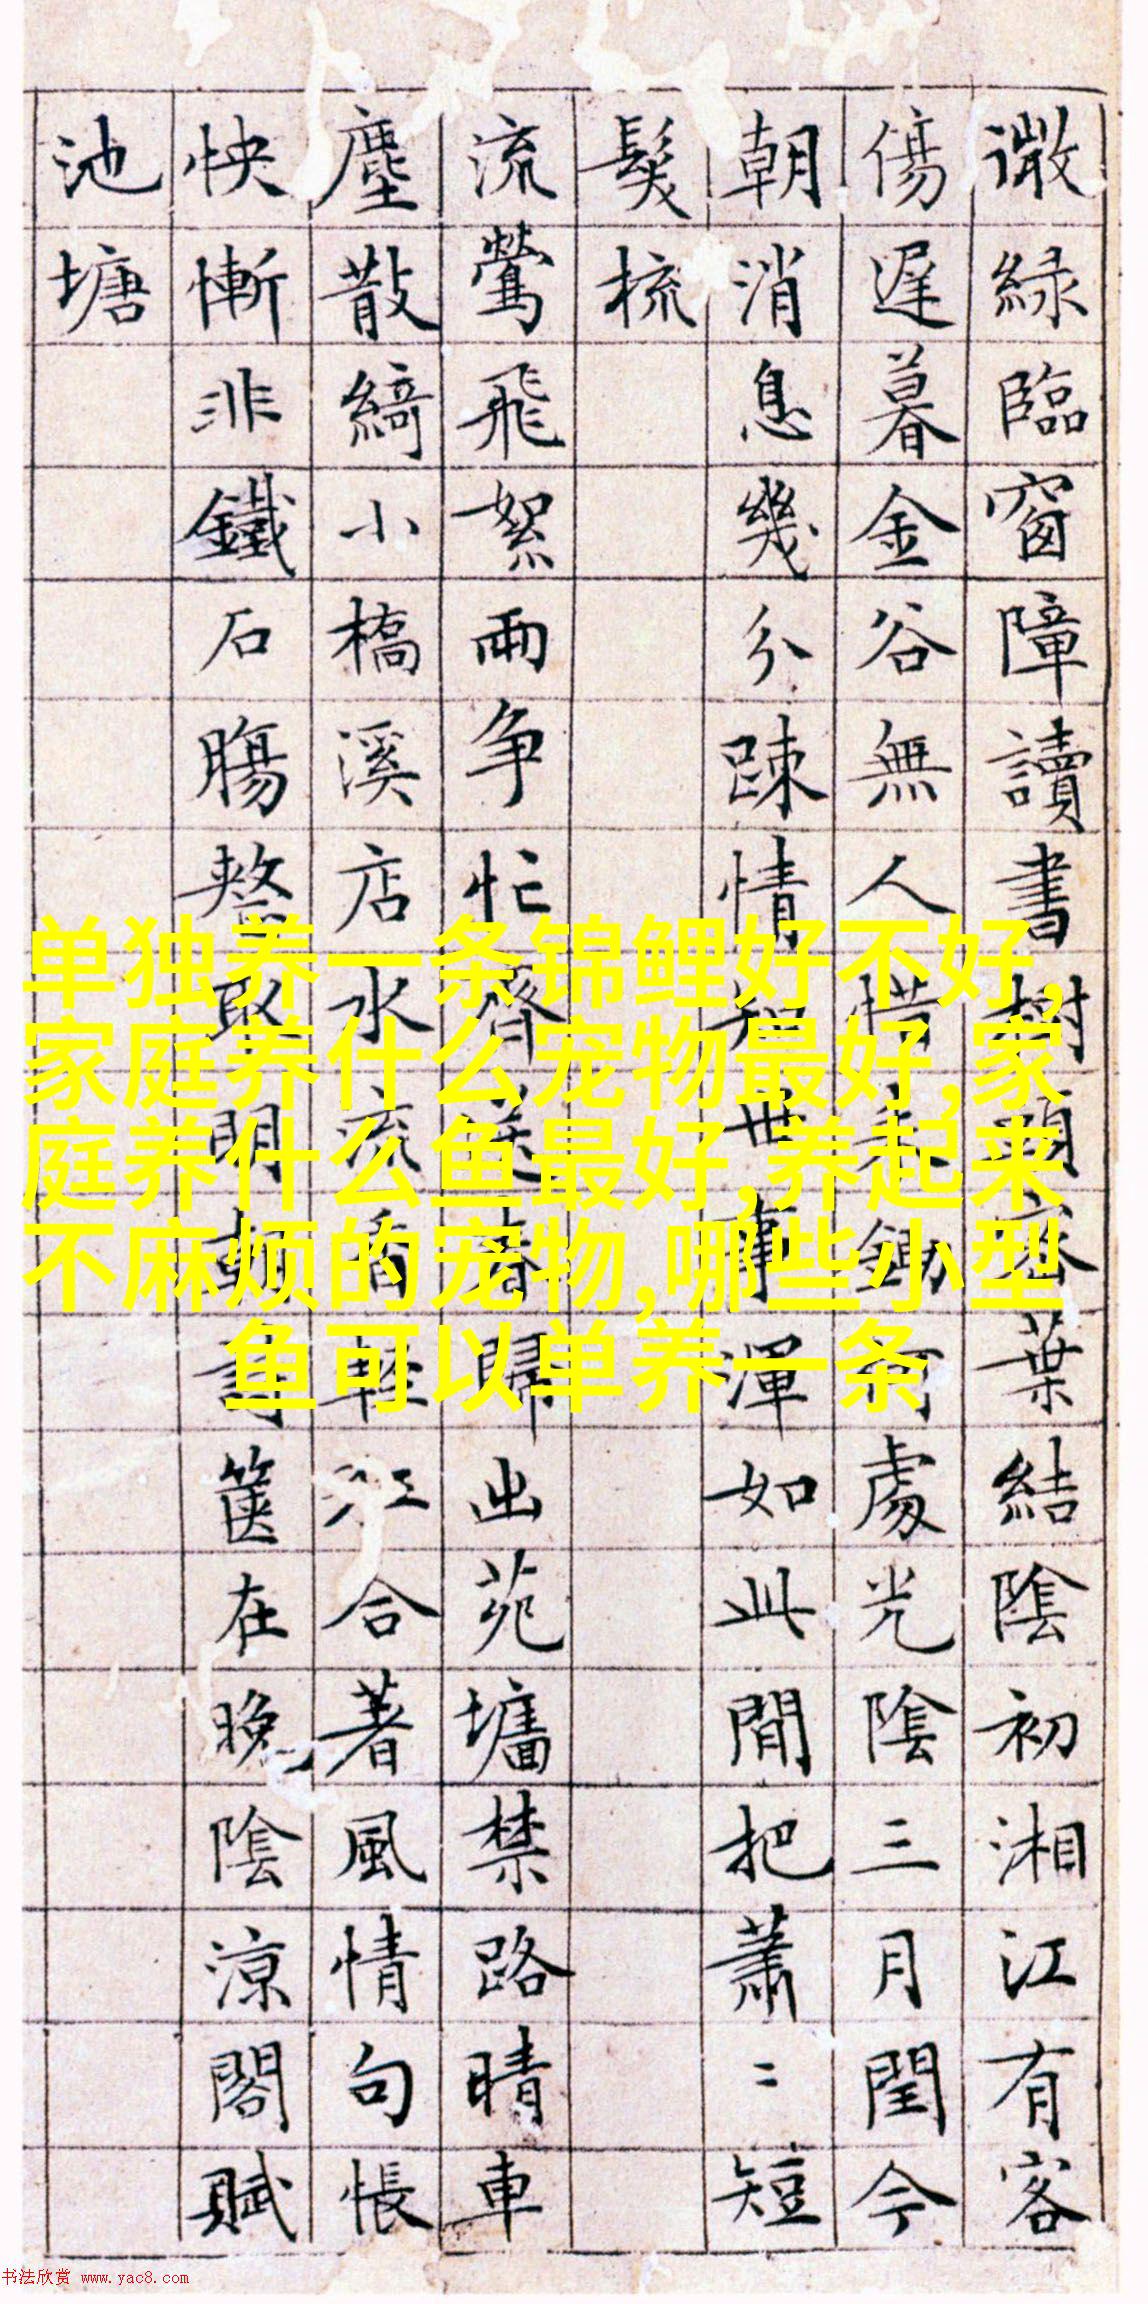 微綠臨窗障讀書樹頭密葉結陰初湘江有客
傷遲暮金谷無人惜鋤處光陰三月閏今
朝消息幾分踈情知世事渾如此間把蕭〻短
鬓梳
流鶯飛絮兩争忙齊送春歸出苑墻禁路晴車
塵散綺小橋溪店水流香輕江合著風情句悵
怏慚非鐵石腸整取明朝書篋在晚陰涼閣賦
池塘
单独养一条锦鲤好不好,
家庭养什么宠物最好,家
庭养什么鱼最好,养起来
不麻烦的宠物,哪些小型
鱼可以单养一条
书法欣赏 www.yac8.com